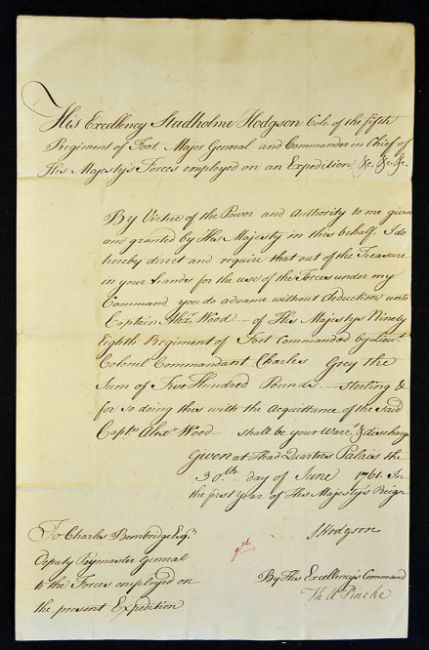 His Excellency Studholme Hodgson Colo. of the fifth
Regiment of Foot Major General and Commander in Chief of
His Majesty's Forces employed on an Expedition &c. &c. &c.
By Virtue of the Power and Authority to me given
and granted by His Majesty in this behalf. I do
hereby direct and require that out of the Treasure
in your hands for the use of the Forces under my
Command you do advance without deduction unto
Captain Alexr. Wood — of His Majesty's Ninety
Eighth Regiment of Foot Commanded by Lieut.
Colonel Commandant Charles Grey the
Sum of Five Hundred Pounds — sterling &
for so doing this with the Acquittance of the said
Captn. Alexr. Wood — shall be your Warrt. & discharge
Given at Head Quarters Palais the
30th. day of June 1761. In
the first Year of His Majesty's Reign
SHodgson
To Charles Bembridge Esqr.
Deputy Paymaster General
to the Forces employed on
the present Expedition
By His Excellency's Command